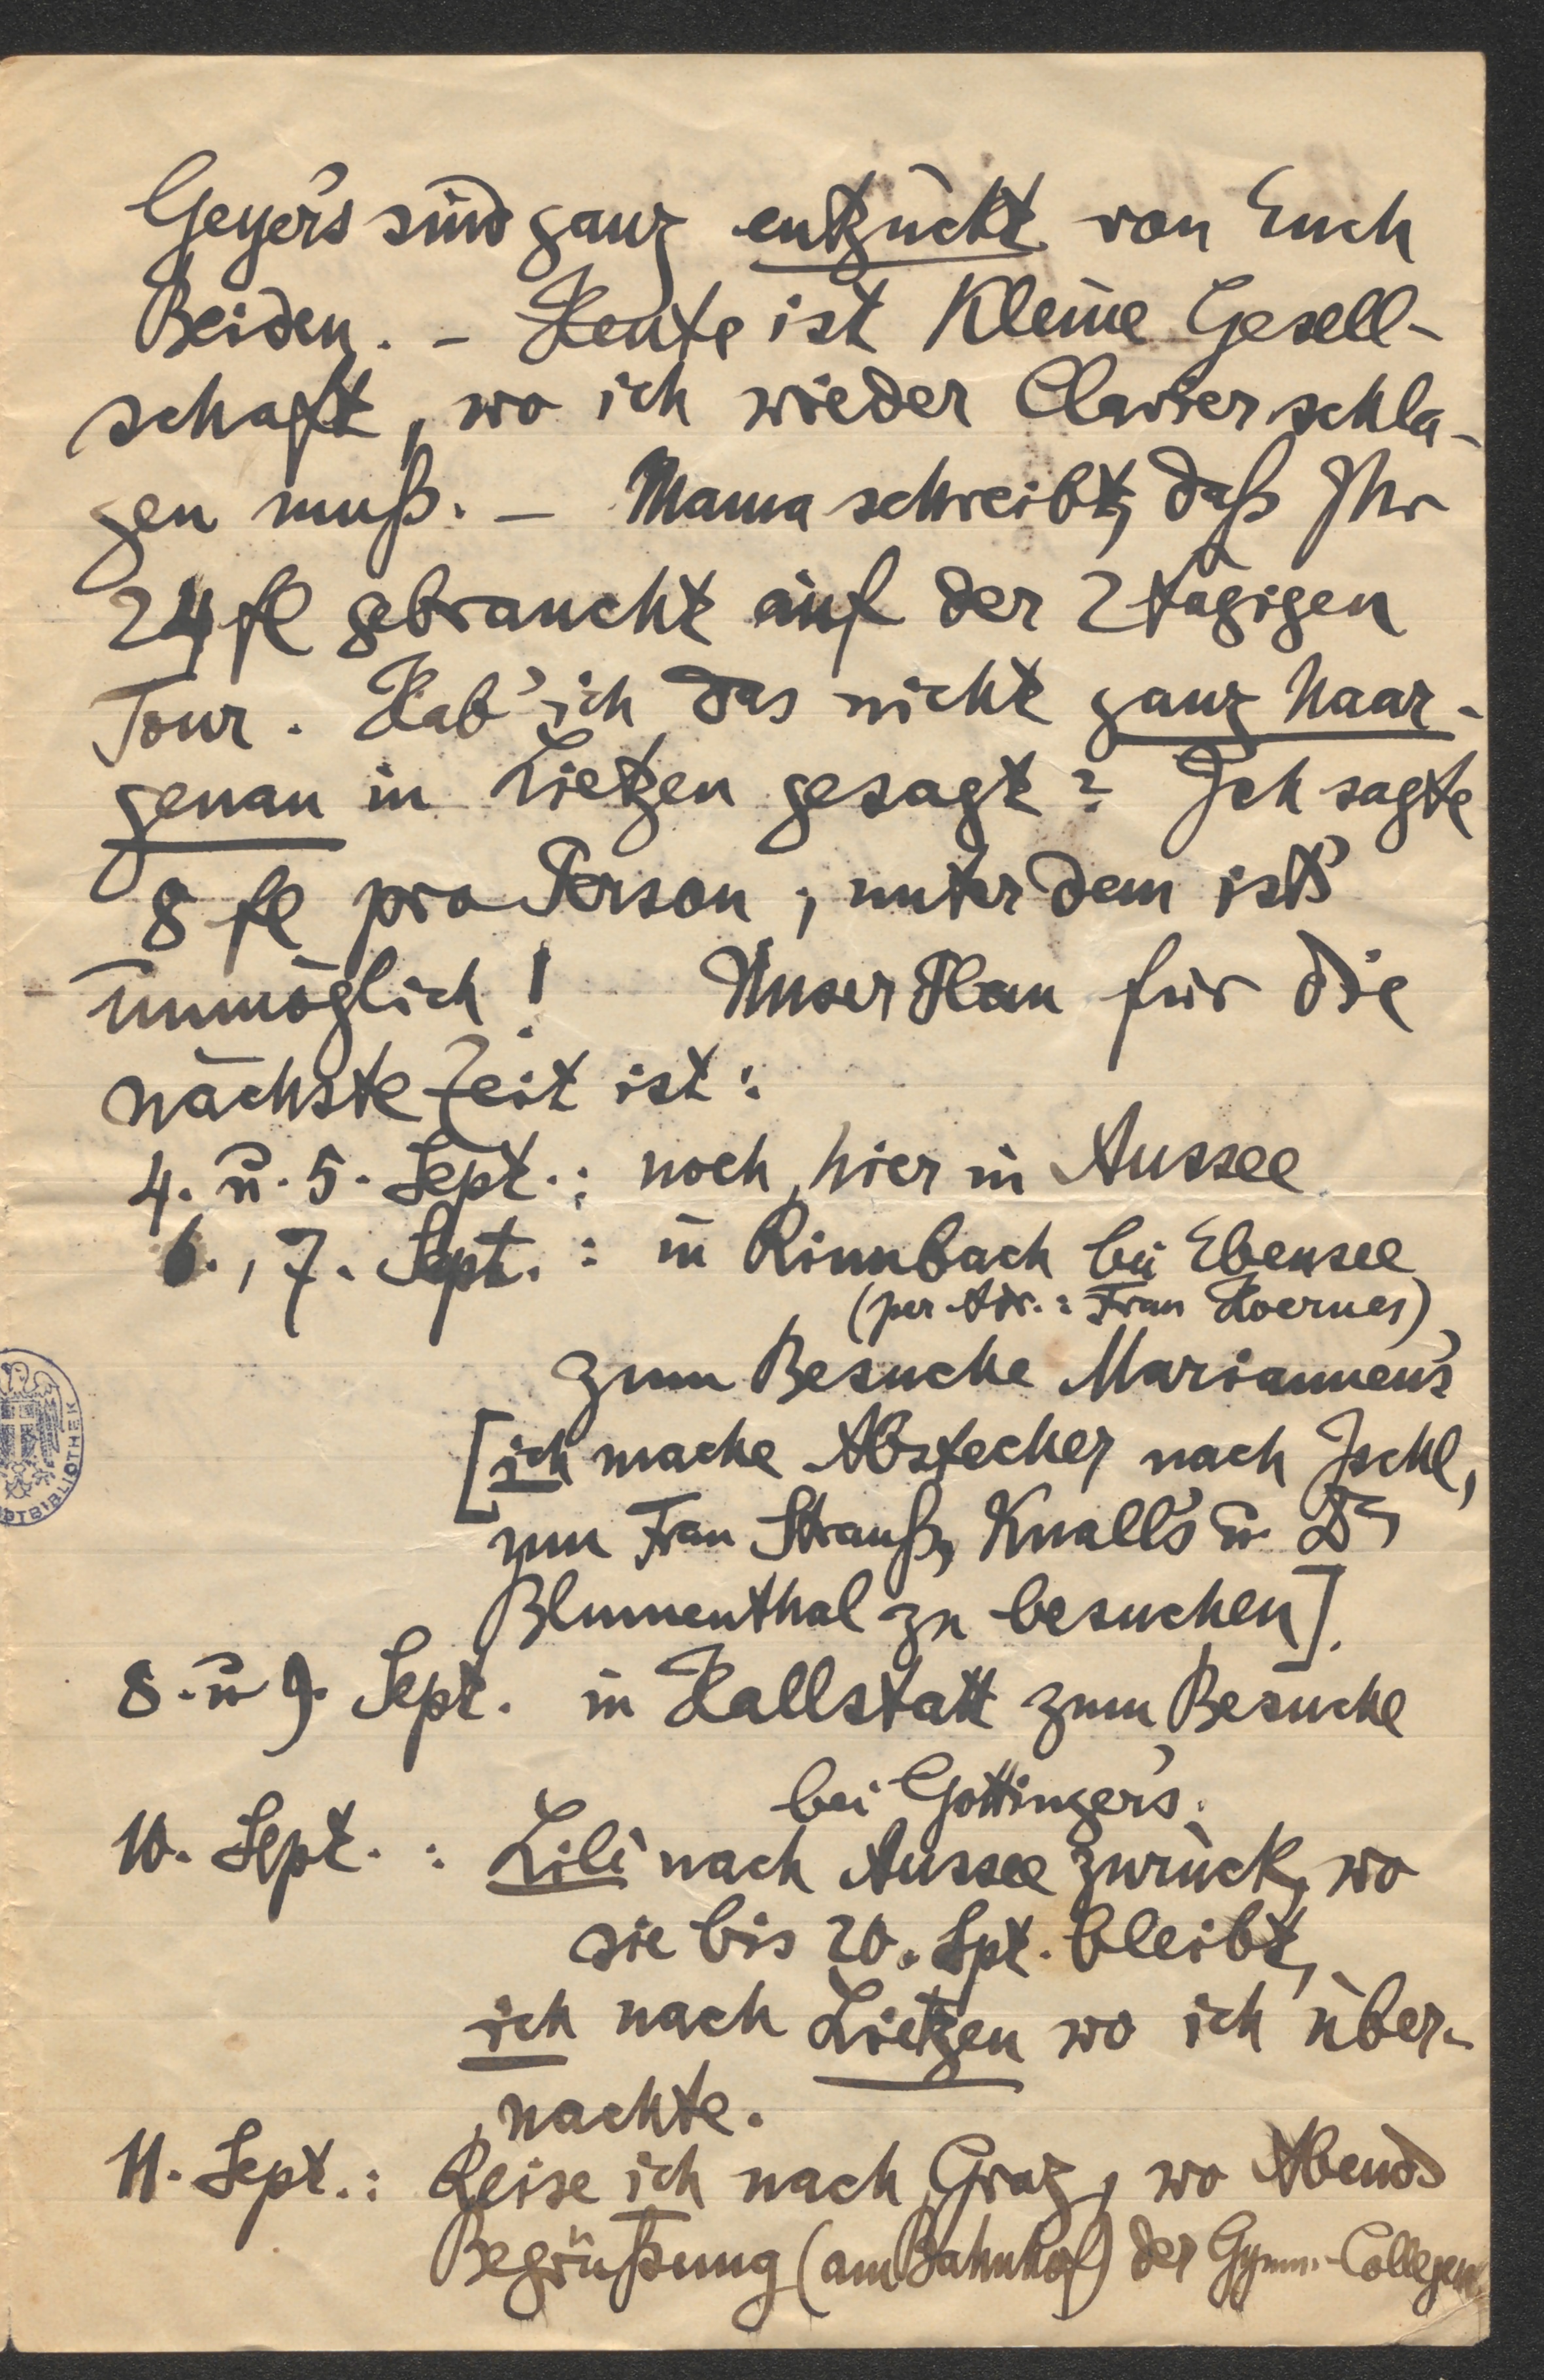 Geyer's sind ganz entzückt von Euch
Beiden. - Heute ist kleine Gesell-
schaft, wo ich wieder Clavier schla-
gen muß. - Mama schreibt, daß Ihr
24 fl gebraucht auf der 2 tägigen
Tour. Hab' ich das nicht ganz haar-
genau in Lietzen gesagt? Ich sagte
8 fl pro Person, unter dem ist's
unmöglich! Unser Plan für die
nächste Zeit ist:
4. u. 5. Sept.: noch hier in Aussee
6., 7. Sept.: in Rinnbach bei Ebensee
(per Adr.: Frau Hoernes)
zum Besuche Mariannen's
[ich mache Abstecher nach Ischl,
um Frau Strauß, Knall's u. Dr
Blumenthal zu besuchen].
8. u 9. Sept. in Hallstatt zum Besuche
bei Gottinger's.
10. Sept.: Lili nach Aussee zurück, wo
sie bis 20. Spt. bleibt,
ich nach Lietzen wo ich über-
nachte.
11. Sept.: Reise ich nach Graz, wo Abends
Begrüßung (am Bahnhof) der Gymn.-Collegen
BIBLIOTHEK